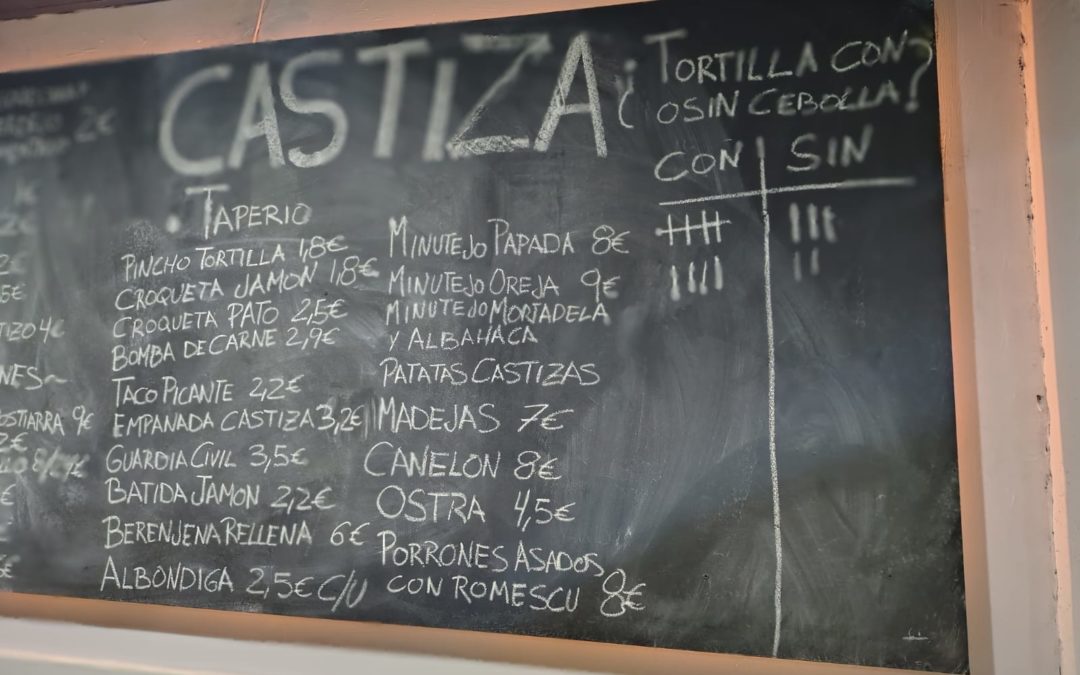 2€
TIZO 4€
NES~
OSTIARRA 9€
CASTIZA
¿TORTILLA CON
O SIN CEBOLLA?
CON
SIN
• TAPERIO
PINCHO TORTILLA 1,8€
CROQUETA JAMON 1,8€
CROQUETA PATO 2,5€
BOMBA DE CARNE 2,9€
TACO PICANTE 2,2€
EMPANADA CASTIZA 3,2€
GUARDIA CIVIL 3,5€
BATIDA JAMON 2,2€
BERENJENA RELLENA 6€
ALBÓNDIGA 2,5€ C/U
MINUTEJO PAPADA 8€
MINUTEJO OREJA 9€
MINUTEJO MORTADELA
Y ALBAHACA
PATATAS CASTIZAS
MADEJAS 7€
CANELON 8€
OSTRA 4,5€
PORRONES ASADOS
CON ROMESCU 8€